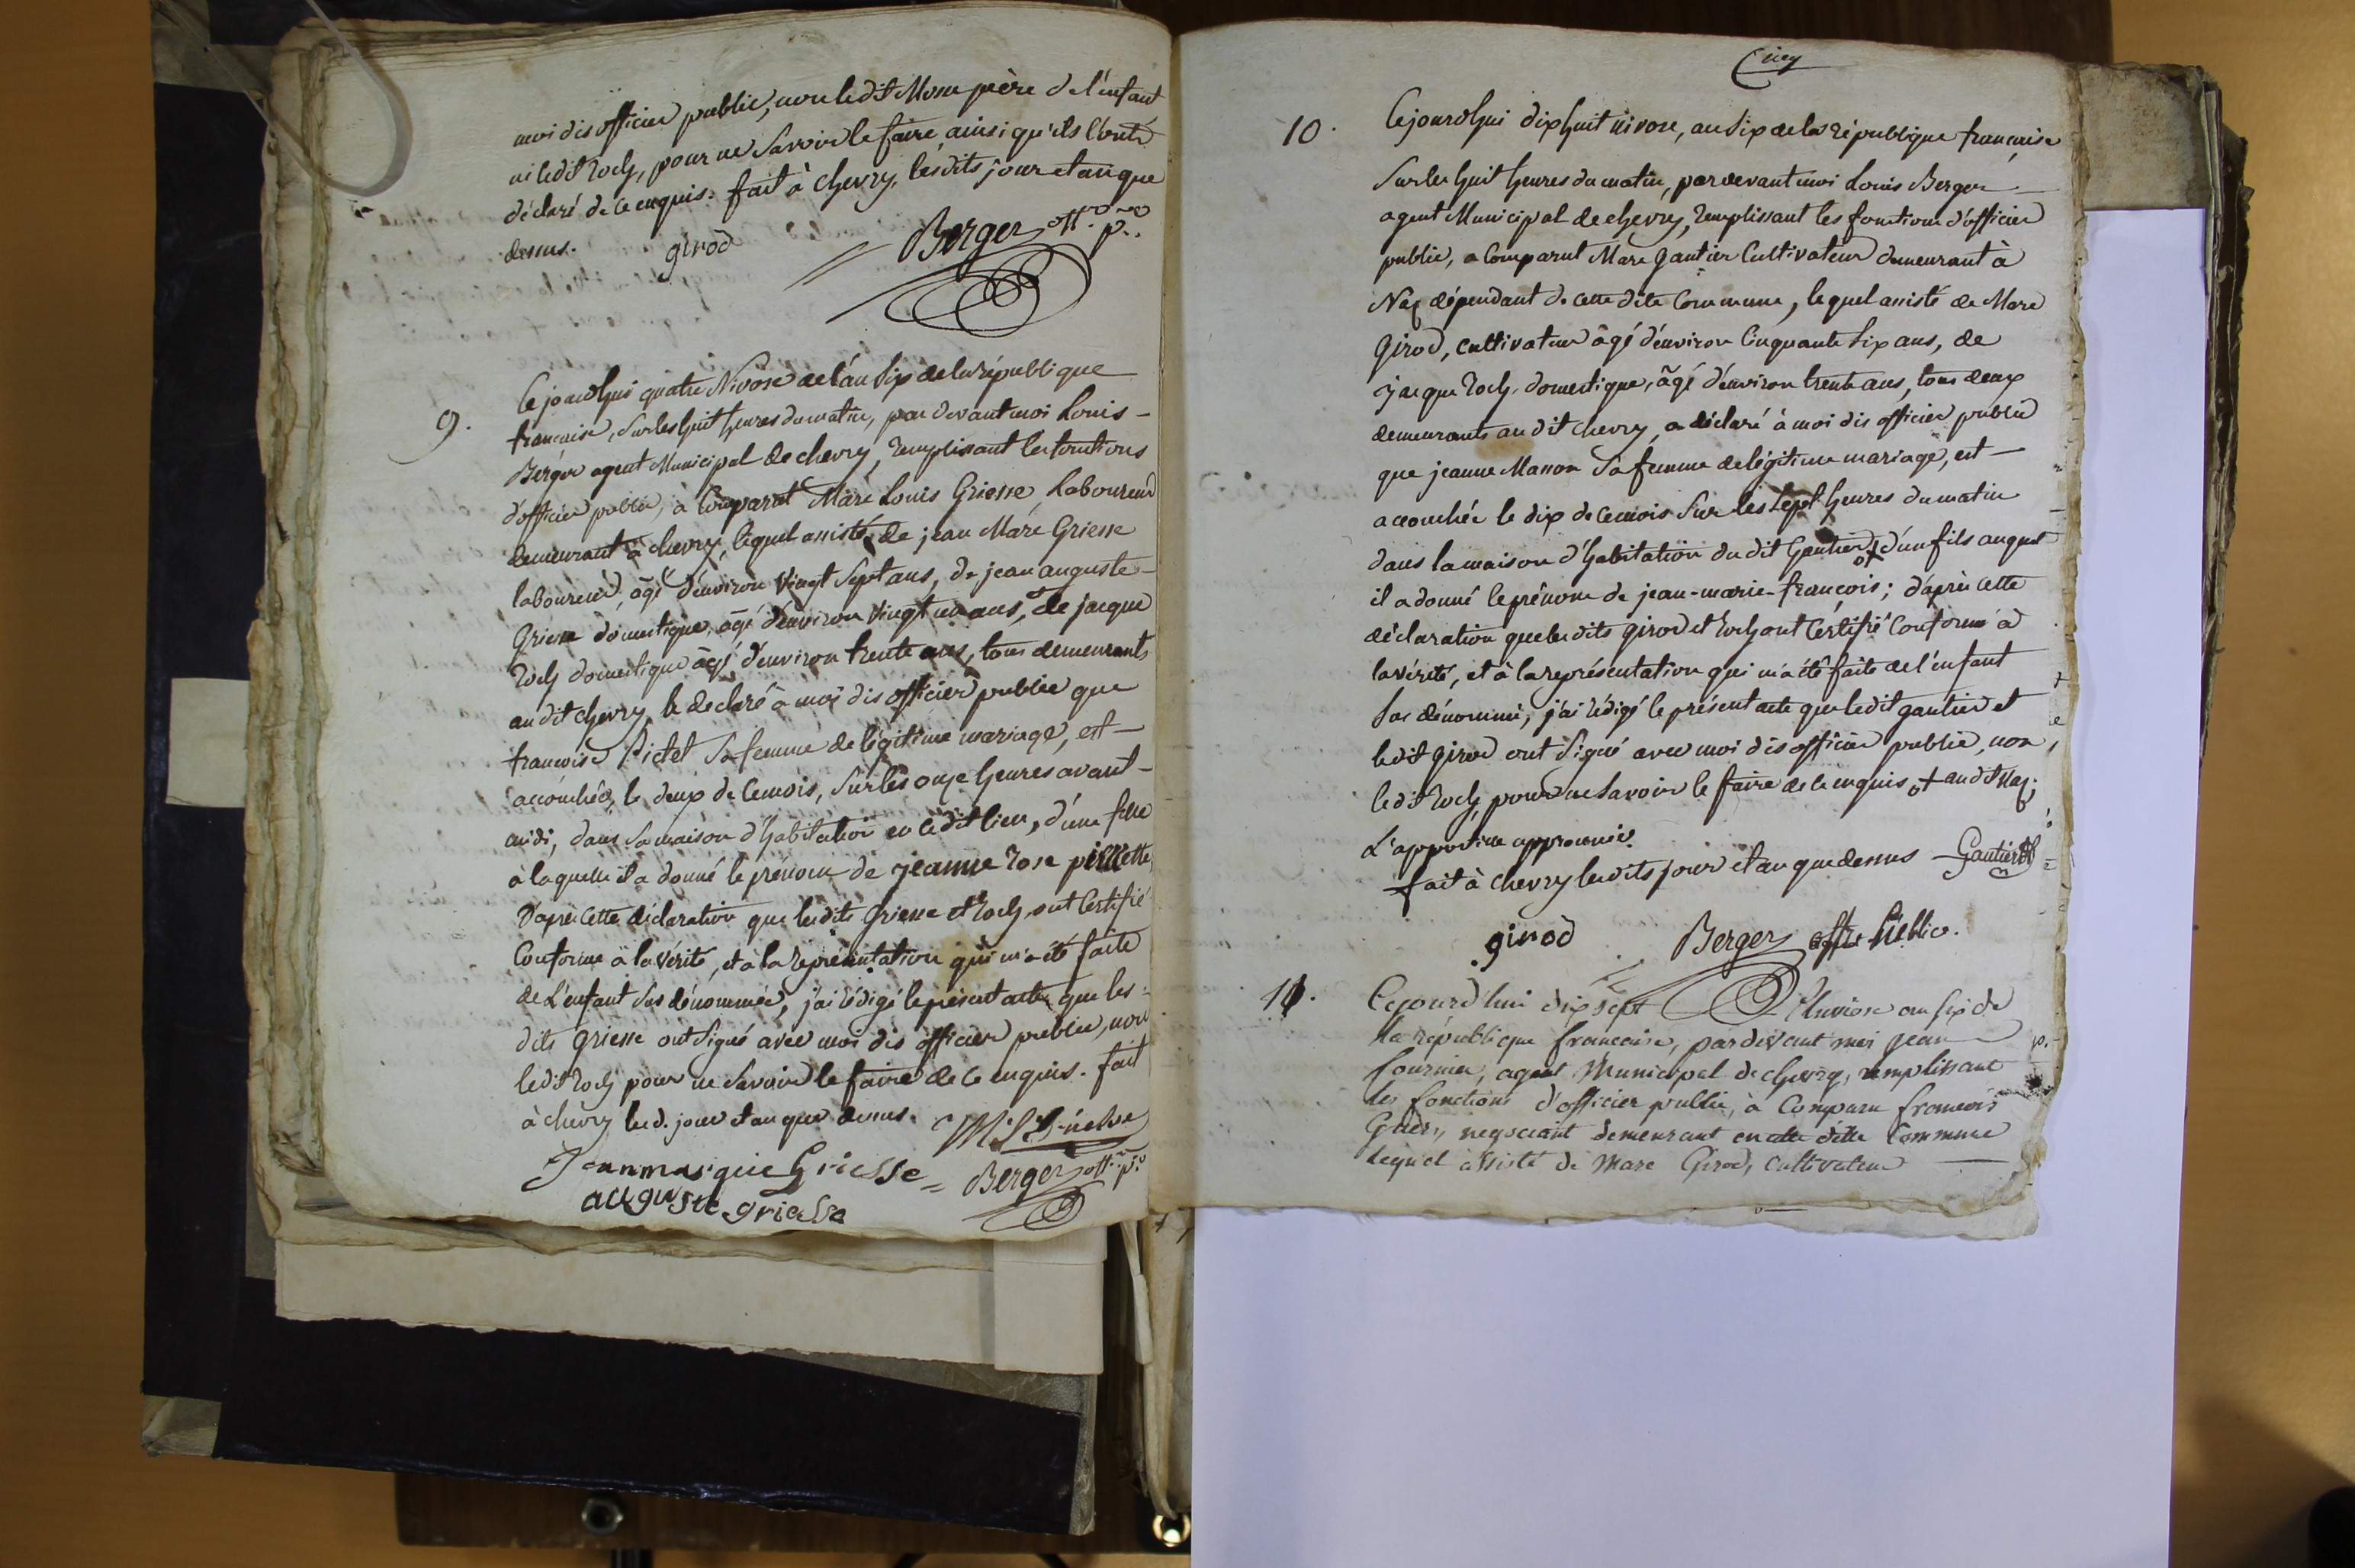 moi dis officier public, non ledit Masson père de l'enfant
ni ledit Roch, pour ne savoir le faire, ainsi qu'ils l'ont
déclaré de ce enquis. fait à Chevry, lesdits jour et an que
dessus. girod Berger off. p.
9.
Cejourdhui quatre Nivose de l'an six de la république
francaise, sur les huit heures du matin, par devant moi Louis-
Berger agent Municipal de chevry, remplissant les fonctions
d'officier public, a comparut Marc Louis Griesse, laboureur
demeurant à chevry, lequel assisté de jean Marc Griesse
laboureur, âgé d'environ vingt sept ans, de jean auguste-
Griesse domestique, âgé d'environ vingt un ans, de jacque
Roch domestique âgé d'environ trente ans, tous demeurants
au dit chevry, le declaré à moi dis officier public que
francoise Pictet sa femme de légitime mariage, est-
accouchée, le deux de cemois, sur les onze heures avant-
midi, dans sa maison d'habitation en cedit lieu, d'une fille
à laquelle il a donné le prénom de jeanne Rose pernette,
D'après cette déclaration que lesdits Griesse et Roch ont certifié
Conforme à la vérité, et à la représentation qui m'a été faite
de L'enfant sus dénommée, j'ai rédigé le présent acte que les
dits griesse ont signé avec moi dis officier public, non
ledit Roch pour ne savoir le faire de ce enquis. fait
à chevry lesd. jour et an que dessus.
Jean marque Griesse = Berger off. p.
auguste griesse
Cinq
10.
Cejourdhui dix huit nivose, an six de la république francaise
sur les huit heures du matin, pardevant moi Louis Berger
agent Municipal de chevry, remplissant les fonctions d'officier
public, a comparut Marc Gautier cultivateur demeurant à
Naz dépendant de cette dite Commune, lequel assisté de Marc
Girod, cultivateur âgé d'environ cinquante six ans, de
jacque Roch domestique, âgé d'environ trente ans, tous deux
demeurants au dit chevry, a déclaré à moi dis officier public
que jeanne Masson sa femme de légitime mariage, est-
accouchée le dix de cemois sur les sept heures du matin
dans la maison d'habitation du dit Gautier + d'un fils auquel
il a donné le prénom de jean-marie-francois; d'après cette
déclaration que lesdits girod et Roch ont certifié conforme à
la vérité, et à la représentation qui m'a été faite de l'enfant
sus dénommé, j'ai rédigé le présent acte que ledit gautier et
ledit girod ont signé avec moi dis officier public, non
ledit Roch, pour ne savoir le faire de ce enquis + audit Naz.
L'appostille approuvée.
fait à chevry lesdits jour et an que dessus Gautier
girod Berger offr Public.
11.
Cejourd'hui dix sept Pluviose an six de
la république francaise, pardevant moi jean
fournier, agent Municipal de chevry, remplissant
les fonctions d'officier public, à Comparu francois
negociant demeurant en cette ditte Commune
lequel assisté de Marc Girod, cultivateur